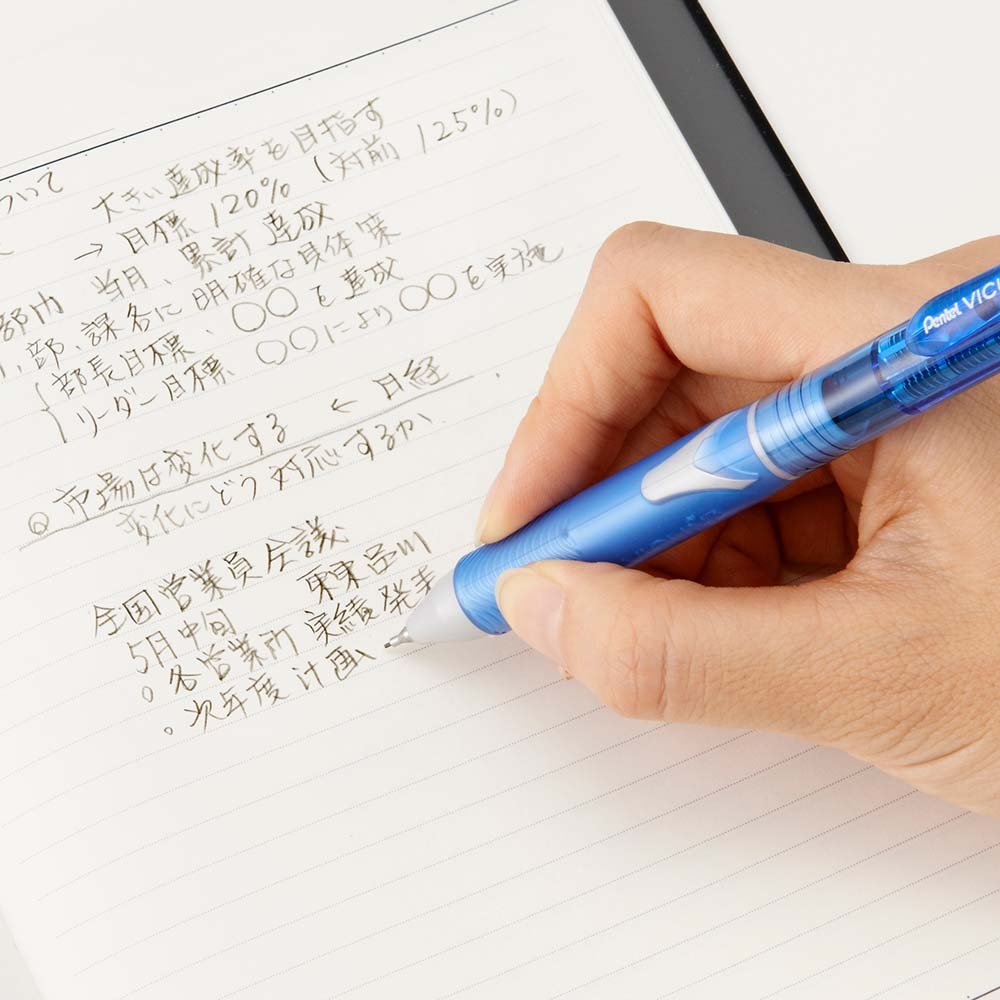 ついて
大きい達成率を目指す
→ 目標 120% (対前 125%)
部内 当月、累計 達成
部、課各に明確な具体策
部長目標、○○を達成
リーダー目標 ○○により○○を実施
◎市場は変化する ← 日経
変化にどう対応するか
全国営業員会議
5月中旬
。各営業所 実績発表
。次年度 計画
Pentel VICU